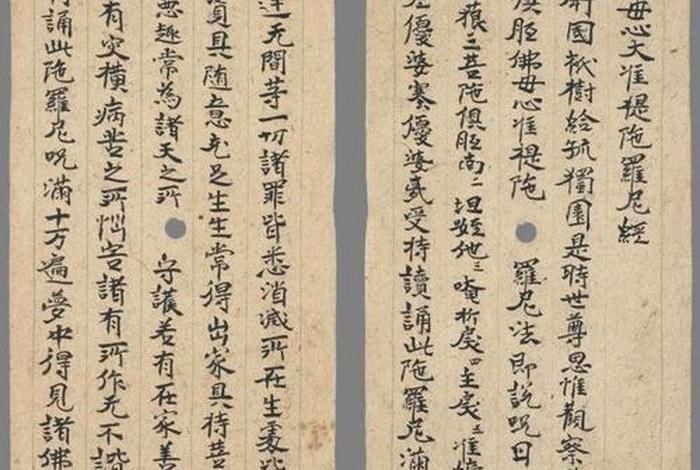 母心大准褆陁羅尼經
衛國祇樹給孤獨園是時世尊思惟觀察
胝佛母心准褆陁羅尼法即說呪曰
三菩陁俱胝南二怛姪他三唵折戾四主戾五准
優婆塞優婆夷受持讀誦此陁羅尼滿
无間等一切諸罪皆悉消滅所在生處
資具随意充足生生常得出家具持菩
惡趣常為諸天之所守護若有在家善
有灾橫病苦之所惱害諸有所作无不諧
誦此陁羅尼呪滿十万遍夢中得見諸佛